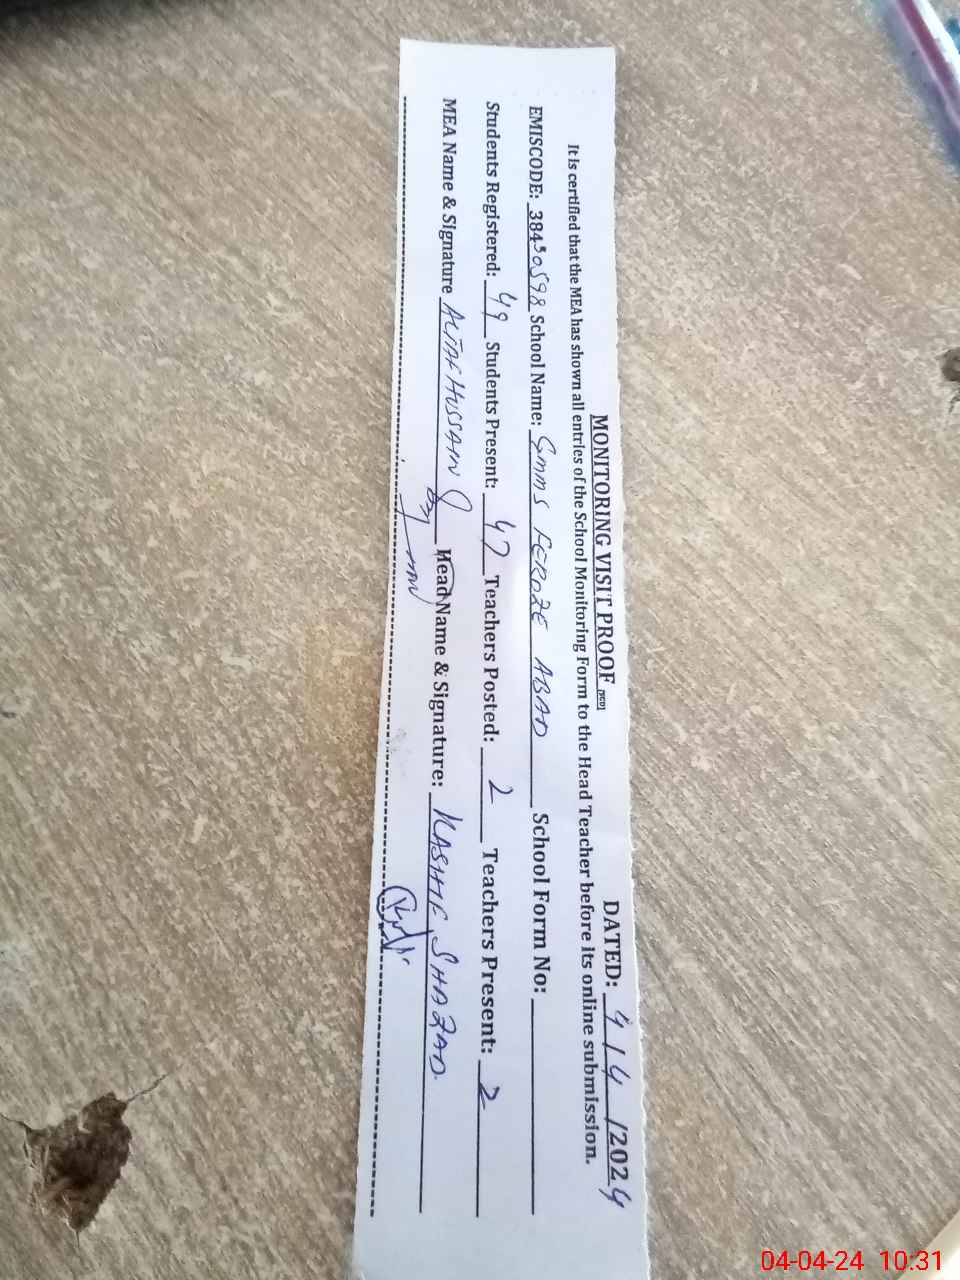 MONITORING VISIT PROOF [SED] DATED: 4/4/2024
It is certified that the MEA has shown all entries of the School Monitoring Form to the Head Teacher before its online submission.
EMISCODE: 38430598 School Name: GMMS FEROZE ABAD School Form No:
Students Registered: 49 Students Present: 47 Teachers Posted: 2 Teachers Present: 2
MEA Name & Signature ALTAF HUSSAIN Head Name & Signature: KASHIF SHAZAD
04-04-24 10:31